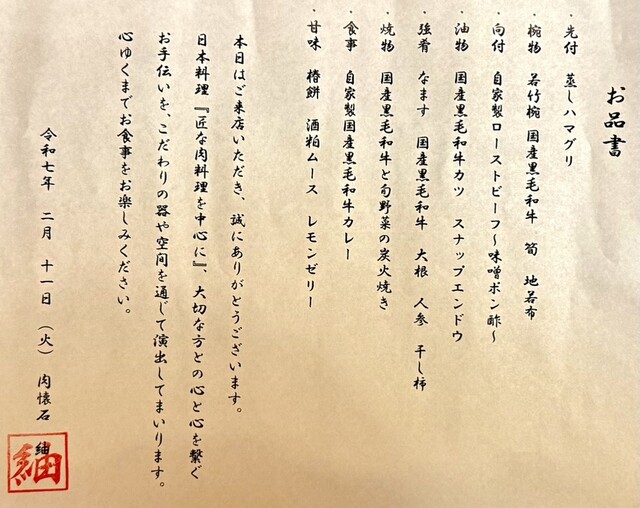 お品書
・先付 蒸しハマグリ
・椀物 若竹椀 国産黒毛和牛 筍 地若布
・向付 自家製ローストビーフ～味噌ポン酢～
・油物 国産黒毛和牛カツ スナップエンドウ
・強肴 なます 国産黒毛和牛 大根 人参 干し柿
・焼物 国産黒毛和牛と旬野菜の炭火焼き
・食事 自家製国産黒毛和牛カレー
・甘味 椿餅 酒粕ムース レモンゼリー
本日はご来店いただき、誠にありがとうございます。
日本料理『匠な肉料理を中心に』、大切な方との心と心を繋ぐ
お手伝いを、こだわりの器や空間を通じて演出してまいります。
心ゆくまでお食事をお楽しみください。
令和七年 二月 十一日 （火） 肉懐石 紬
紬